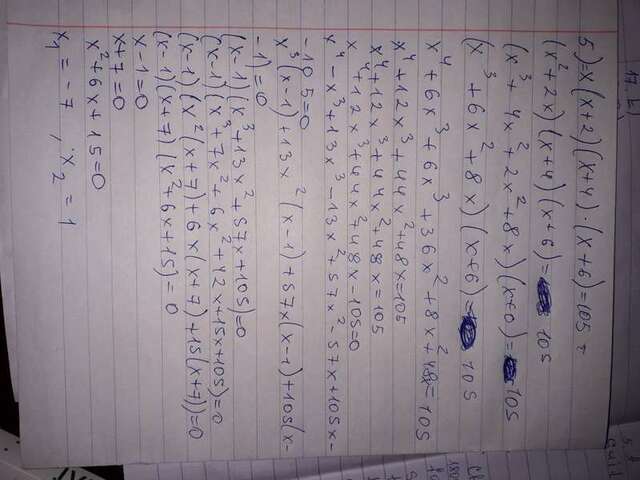 5) x(x+2)(x+4)·(x+6)=105
(x²+2x)(x+4)(x+6)= 105
(x³+4x²+2x²+8x)(x+6)= 105
(x³+6x²+8x)(x+6)= 105
x⁴+6x³+6x³+36x²+8x²+48x=105
x⁴+12x³+44x²+48x=105
x⁴+12x³+44x²+48x=105
x⁴+12x³+44x²+48x-105=0
x⁴-x³+13x³-13x²+57x²-57x+105x-
-105=0
x³(x-1)+13x²(x-1)+57x(x-1)+105(x-
-1)=0
(x-1)(x³+13x²+57x+105)=0
(x-1)(x³+7x²+6x²+42x+15x+105)=0
(x-1)(x²(x+7)+6x(x+7)+15(x+7))=0
(x-1)(x+7)(x²+6x+15)=0
x-1=0
x+7=0
x²+6x+15=0
x₁=-7, x₂=1